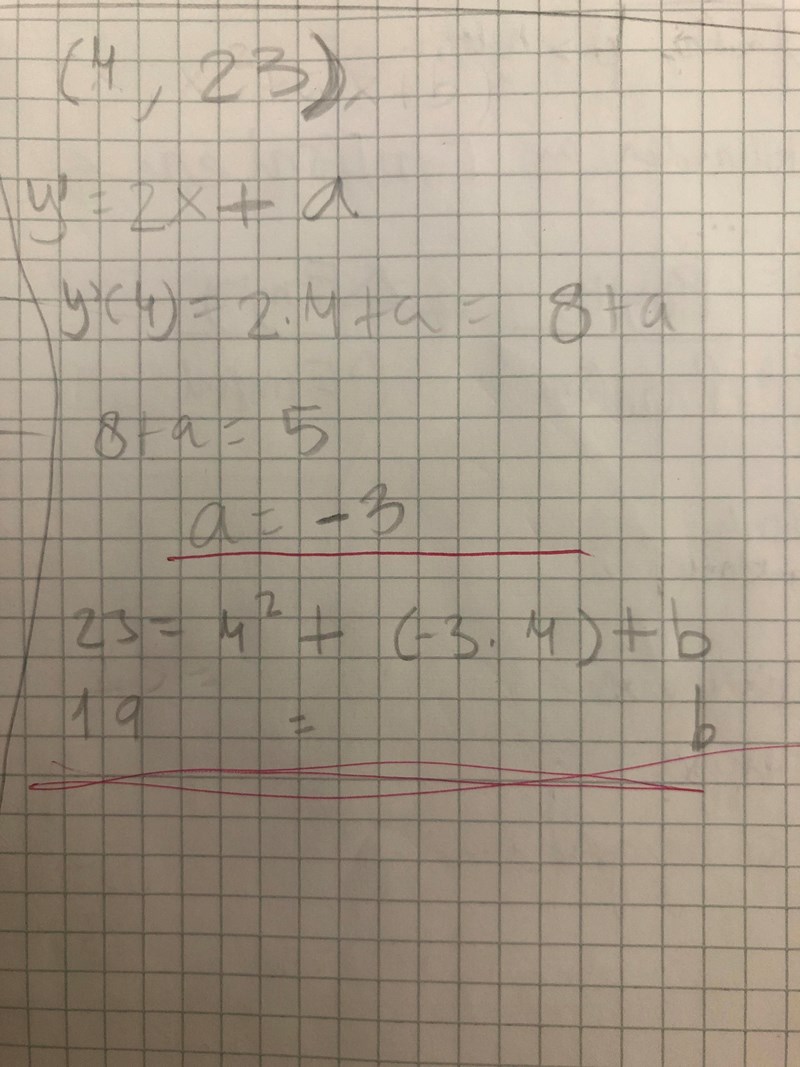 (4, 23)
y' = 2x + a
y'(4) = 2·4 + a = 8 + a
8 + a = 5
a = -3
23 = 4² + (-3·4) + b
19 = b